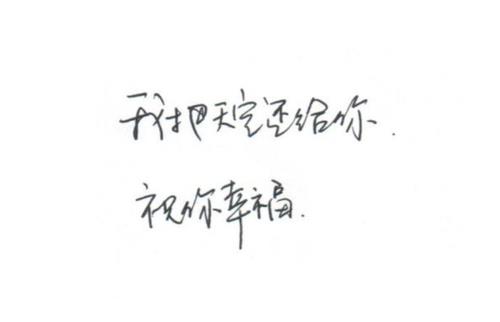 我把天空还给你.
祝你幸福.